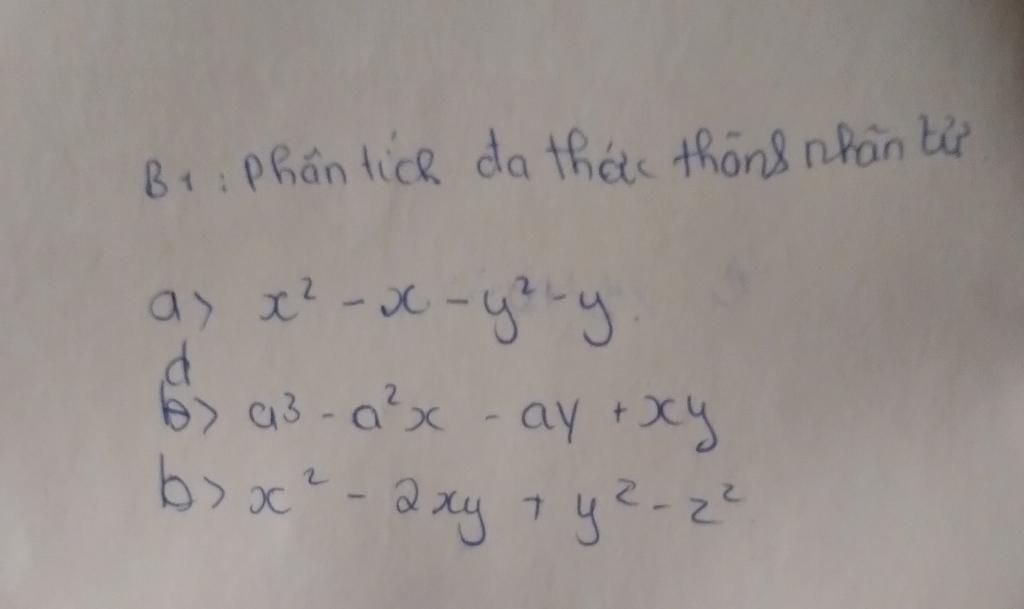 B1: Phân tích đa thức thành nhân tử
a> x² - x - y² - y
d
b> a3 - a²x - ay + xy
b> x² - 2xy + y² - z²